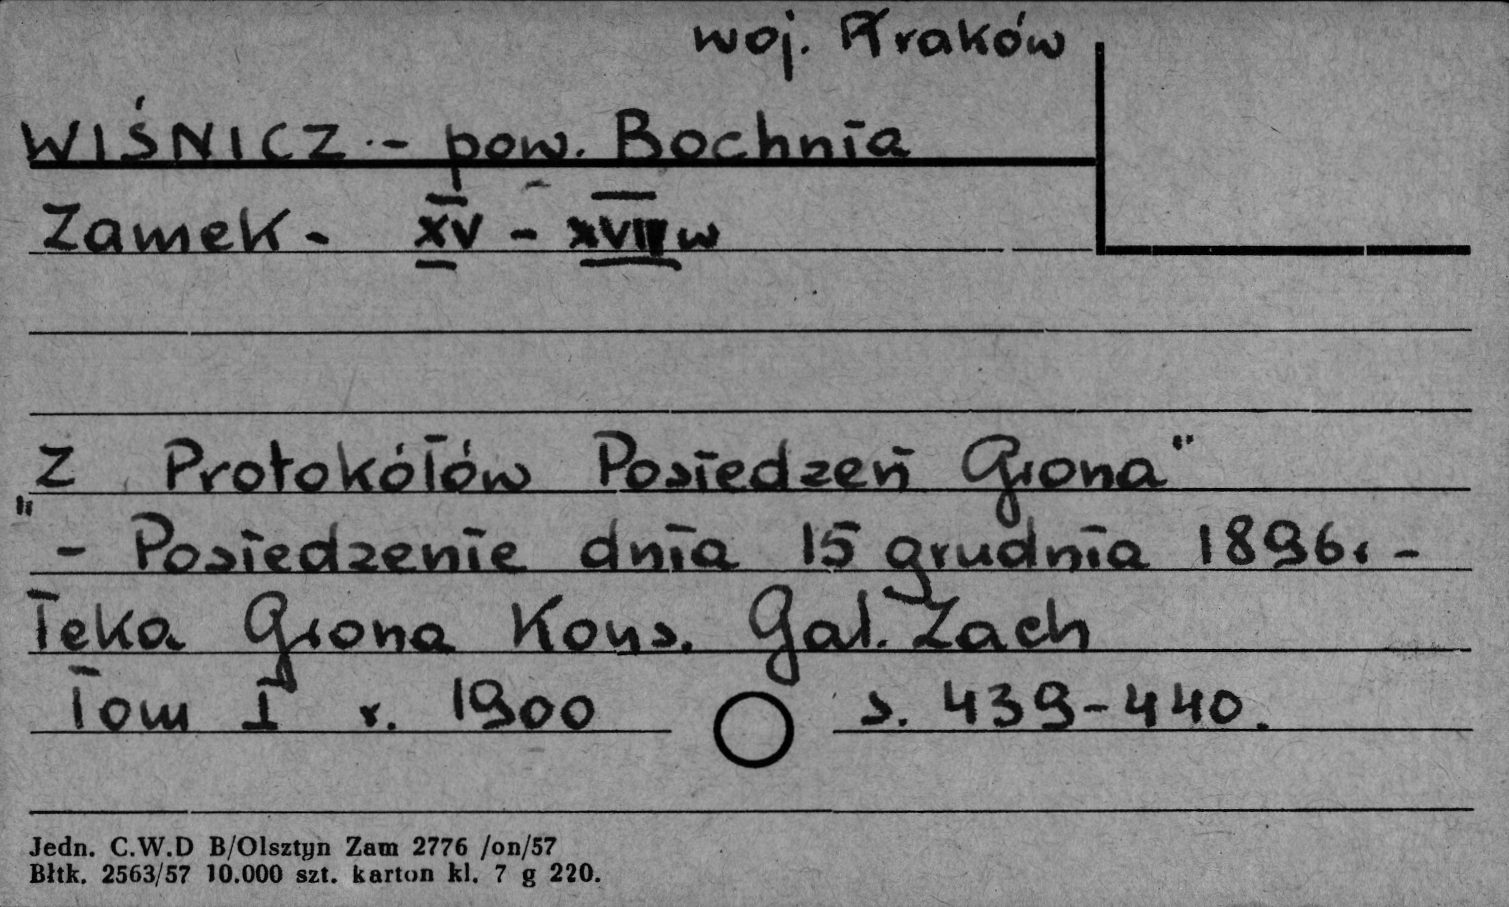 woj. Kraków
WIŚNICZ - pow. Bochnia
Zamek - XV - XVII w
"Z Protokółów Posiedzeń Grona"
- Posiedzenie dnia 15 grudnia 1896r -
Teka Grona Kons. Gal. Zach
Tom I r. 1900 s. 439-440.
Jedn. C.W.D B/Olsztyn Zam 2776 /on/57
Błtk. 2563/57 10.000 szt. karton kl. 7 g 220.